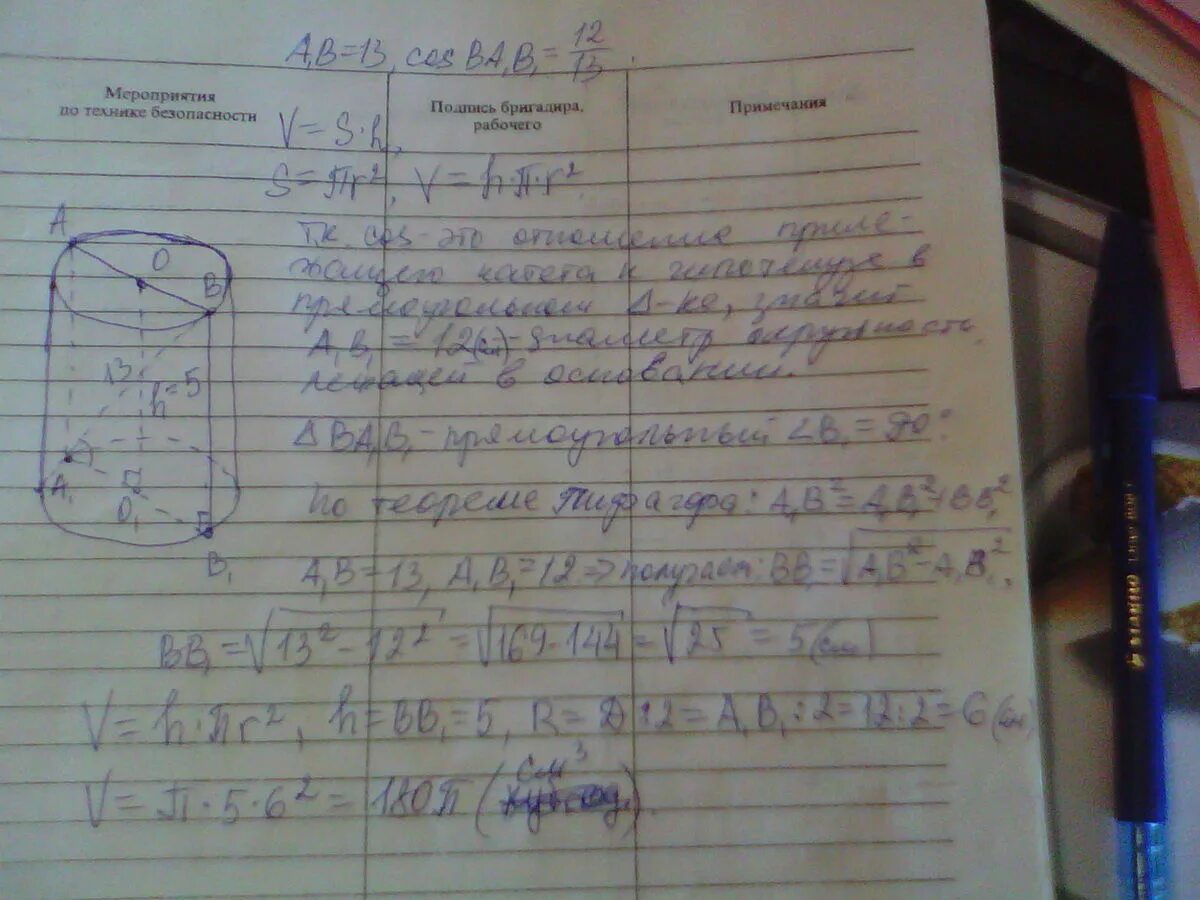 A₁B=13, cos BA₁B₁ = 12/13.
Мероприятия по технике безопасности
Подпись бригадира, рабочего
Примечания
V = S·h,
S = πr², V = h·π·r².
Т.к. cos - это отношение приле-
жащего катета к гипотенузе в
прямоугольном Δ-ке, значит
A₁B₁ = 12(см) - диаметр окружности,
лежащей в основании.
A
O
B
13
h=5
A₁
O₁
B₁
Δ BA₁B₁ - прямоугольный ∠B₁ = 90°
По теореме Пифагора: A₁B² = A₁B₁² + BB₁²
A₁B = 13, A₁B₁ = 12 => получаем: BB₁ = √A₁B² - A₁B₁²,
BB₁ = √13² - 12² = √169 - 144 = √25 = 5 (см)
V = h·πr², h = BB₁ = 5, R = D:2 = A₁B₁:2 = 12:2 = 6 (см)
V = π·5·6² = 180π (см³).
STABILO